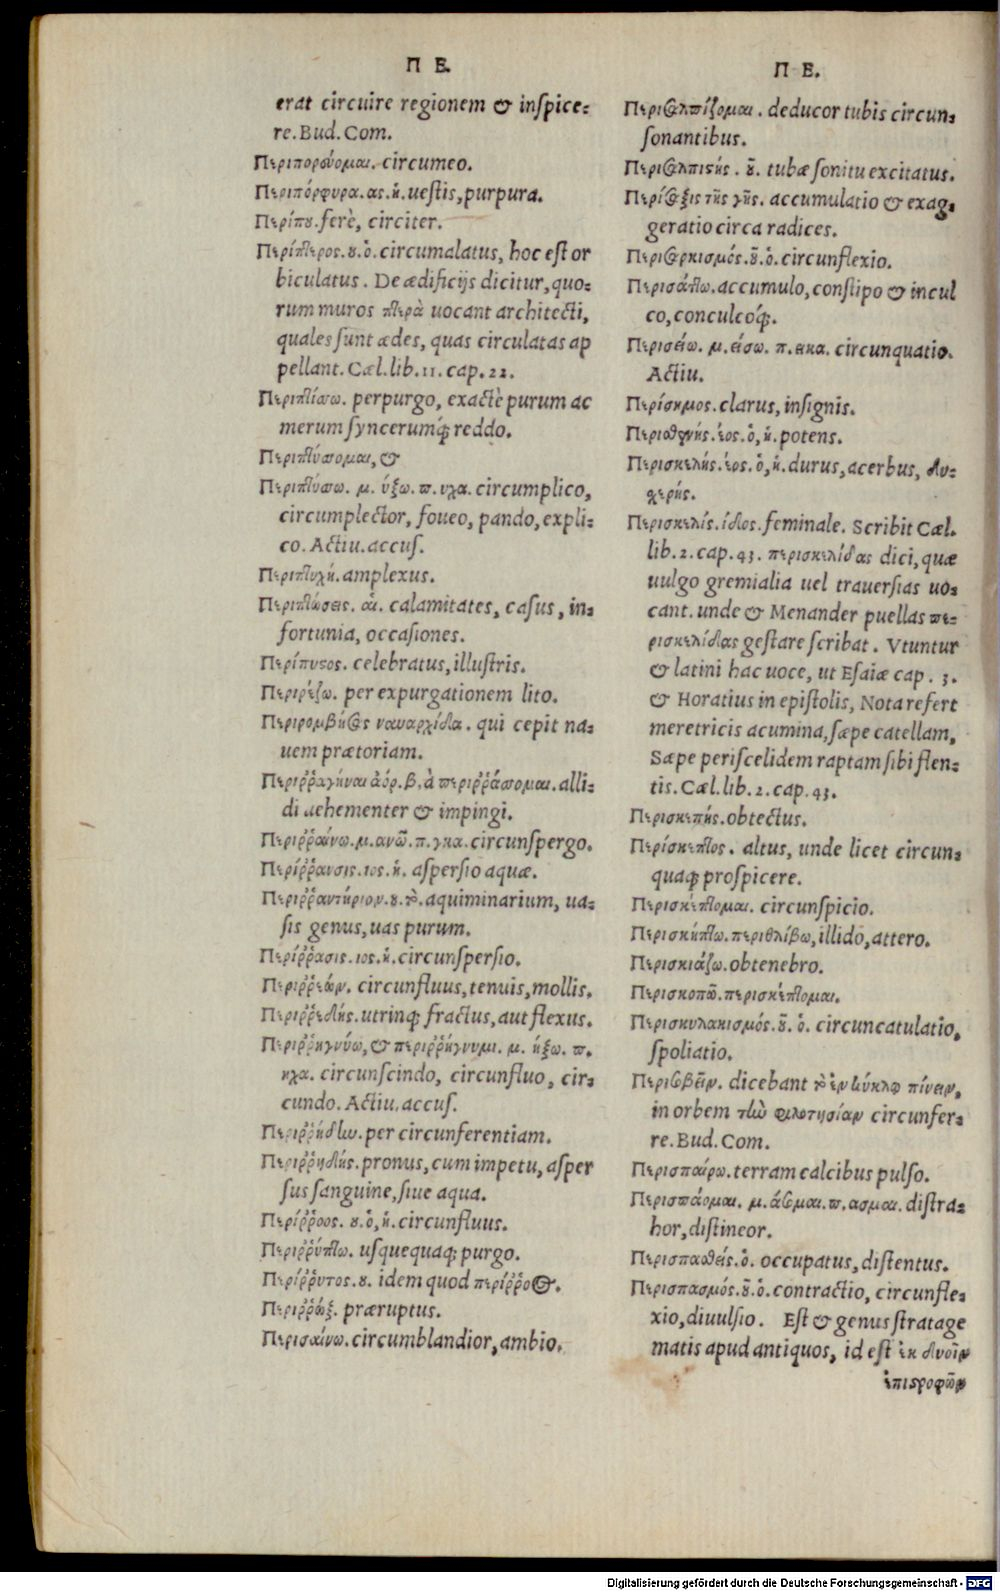 Π Ε.
erat circuire regionem & inſpice-
re. Bud. Com.
Περιπορεύομαι. circumeo.
Περιπόρφυρα. ας. ἡ. ueſtis, purpura.
Περίπου. ferè, circiter.
Περίπτερος. ου. ὁ. circumalatus, hoc eſt or
biculatus. De ædificijs dicitur, quo-
rum muros πτερὰ uocant architecti,
quales ſunt ædes, quas circulatas ap
pellant. Cæl. lib. 11. cap. 22.
Περιπτίσσω. perpurgo, exactè purum ac
merum ſyncerumq́; reddo.
Περιπτύσσομαι, &
Περιπτύσσω. μ. ύξω. π. υχα. circumplico,
circumplector, foueo, pando, expli-
co. Actiu. accuſ.
Περιπτυχή. amplexus.
Περιπτώσεις. αἱ. calamitates, caſus, in-
fortunia, occaſiones.
Περίπυστος. celebratus, illuſtris.
Περιρέζω. per expurgationem lito.
Περιρομβήσας ναυαρχίδα. qui cepit na-
uem prætoriam.
Περιῤῥαγῆναι ἀόρ. β. ἀ περιῤῥάσσομαι. alli-
di uehementer & impingi.
Περιῤῥαίνω. μ. ανῶ. π. γκα. circunſpergo.
Περίῤῥανσις. ιος. ἡ. aſperſio aquæ.
Περιῤῥαντήριον. ου. τὸ. aquiminarium, ua-
ſis genus, uas purum.
Περίῤῥασις. ιος. ἡ. circunſperſio.
Περιῤῥεών. circunfluus, tenuis, mollis.
Περιῤῥεδής. utrinq; fractus, aut flexus.
Περιῤῥηγνύω, & περιῤῥήγνυμι. μ. ήξω. π.
ηχα. circunſcindo, circunfluo, cir-
cundo. Actiu. accuſ.
Περιῤῥήδην. per circunferentiam.
Περιῤῥηδής. pronus, cum impetu, aſper
ſus ſanguine, ſiue aqua.
Περίῤῥοος. ου. ὁ, ἡ. circunfluus.
Περιῤῥύπτω. uſquequaq; purgo.
Περίῤῥυτος. ου. idem quod περίῤῥοος.
Περιῤῥώξ. præruptus.
Περισαίνω. circumblandior, ambio.
Π Ε.
Περισαλπίζομαι. deducor tubis circun-
ſonantibus.
Περισαλπιστής. οῦ. tubæ ſonitu excitatus.
Περίσαξις τῆς γῆς. accumulatio & exag-
geratio circa radices.
Περισαρκισμός. οῦ. ὁ. circunflexio.
Περισάττω. accumulo, conſtipo & incul
co, conculcoq́;.
Περισείω. μ. είσω. π. εικα. circunquatio.
Actiu.
Περίσημος. clarus, inſignis.
Περισθενής. έος. ὁ, ἡ. potens.
Περισκελής. έος. ὁ, ἡ. durus, acerbus, δυ-
χερής.
Περισκελίς. ίδος. feminale. Scribit Cæl.
lib. 2. cap. 43. περισκελίδας dici, quæ
uulgo gremialia uel trauerſias uo-
cant. unde & Menander puellas πε-
ρισκελίδας geſtare ſcribat. Vtuntur
& latini hac uoce, ut Eſaiæ cap. 3.
& Horatius in epiſtolis, Nota refert
meretricis acumina, ſæpe catellam,
Sæpe periſcelidem raptam ſibi flen-
tis. Cæl. lib. 2. cap. 43.
Περισκεπής. obtectus.
Περίσκεπτος. altus, unde licet circun-
quaq; proſpicere.
Περισκέπτομαι. circunſpicio.
Περισκήπτω. περιθλίβω, illido, attero.
Περισκιάζω. obtenebro.
Περισκοπῶ. περισκέπτομαι.
Περισκυλακισμός. οῦ. ὁ. circuncatulatio,
ſpoliatio.
Περισοβεῖν. dicebant τὸ ἐν κύκλῳ πίνειν,
in orbem τὴν φιλοτησίαν circunfer-
re. Bud. Com.
Περισπαίρω. terram calcibus pulſo.
Περισπάομαι. μ. άσομαι. π. ασμαι. diſtra-
hor, diſtineor.
Περισπασθείς. ὁ. occupatus, diſtentus.
Περισπασμός. οῦ. ὁ. contractio, circunfle-
xio, diuulſio. Eſt & genus ſtratage
matis apud antiquos, id eſt ἐκ δυοῖν
ἐπιστροφῶν
Digitalisierung gefördert durch die Deutsche Forschungsgemeinschaft - DFG